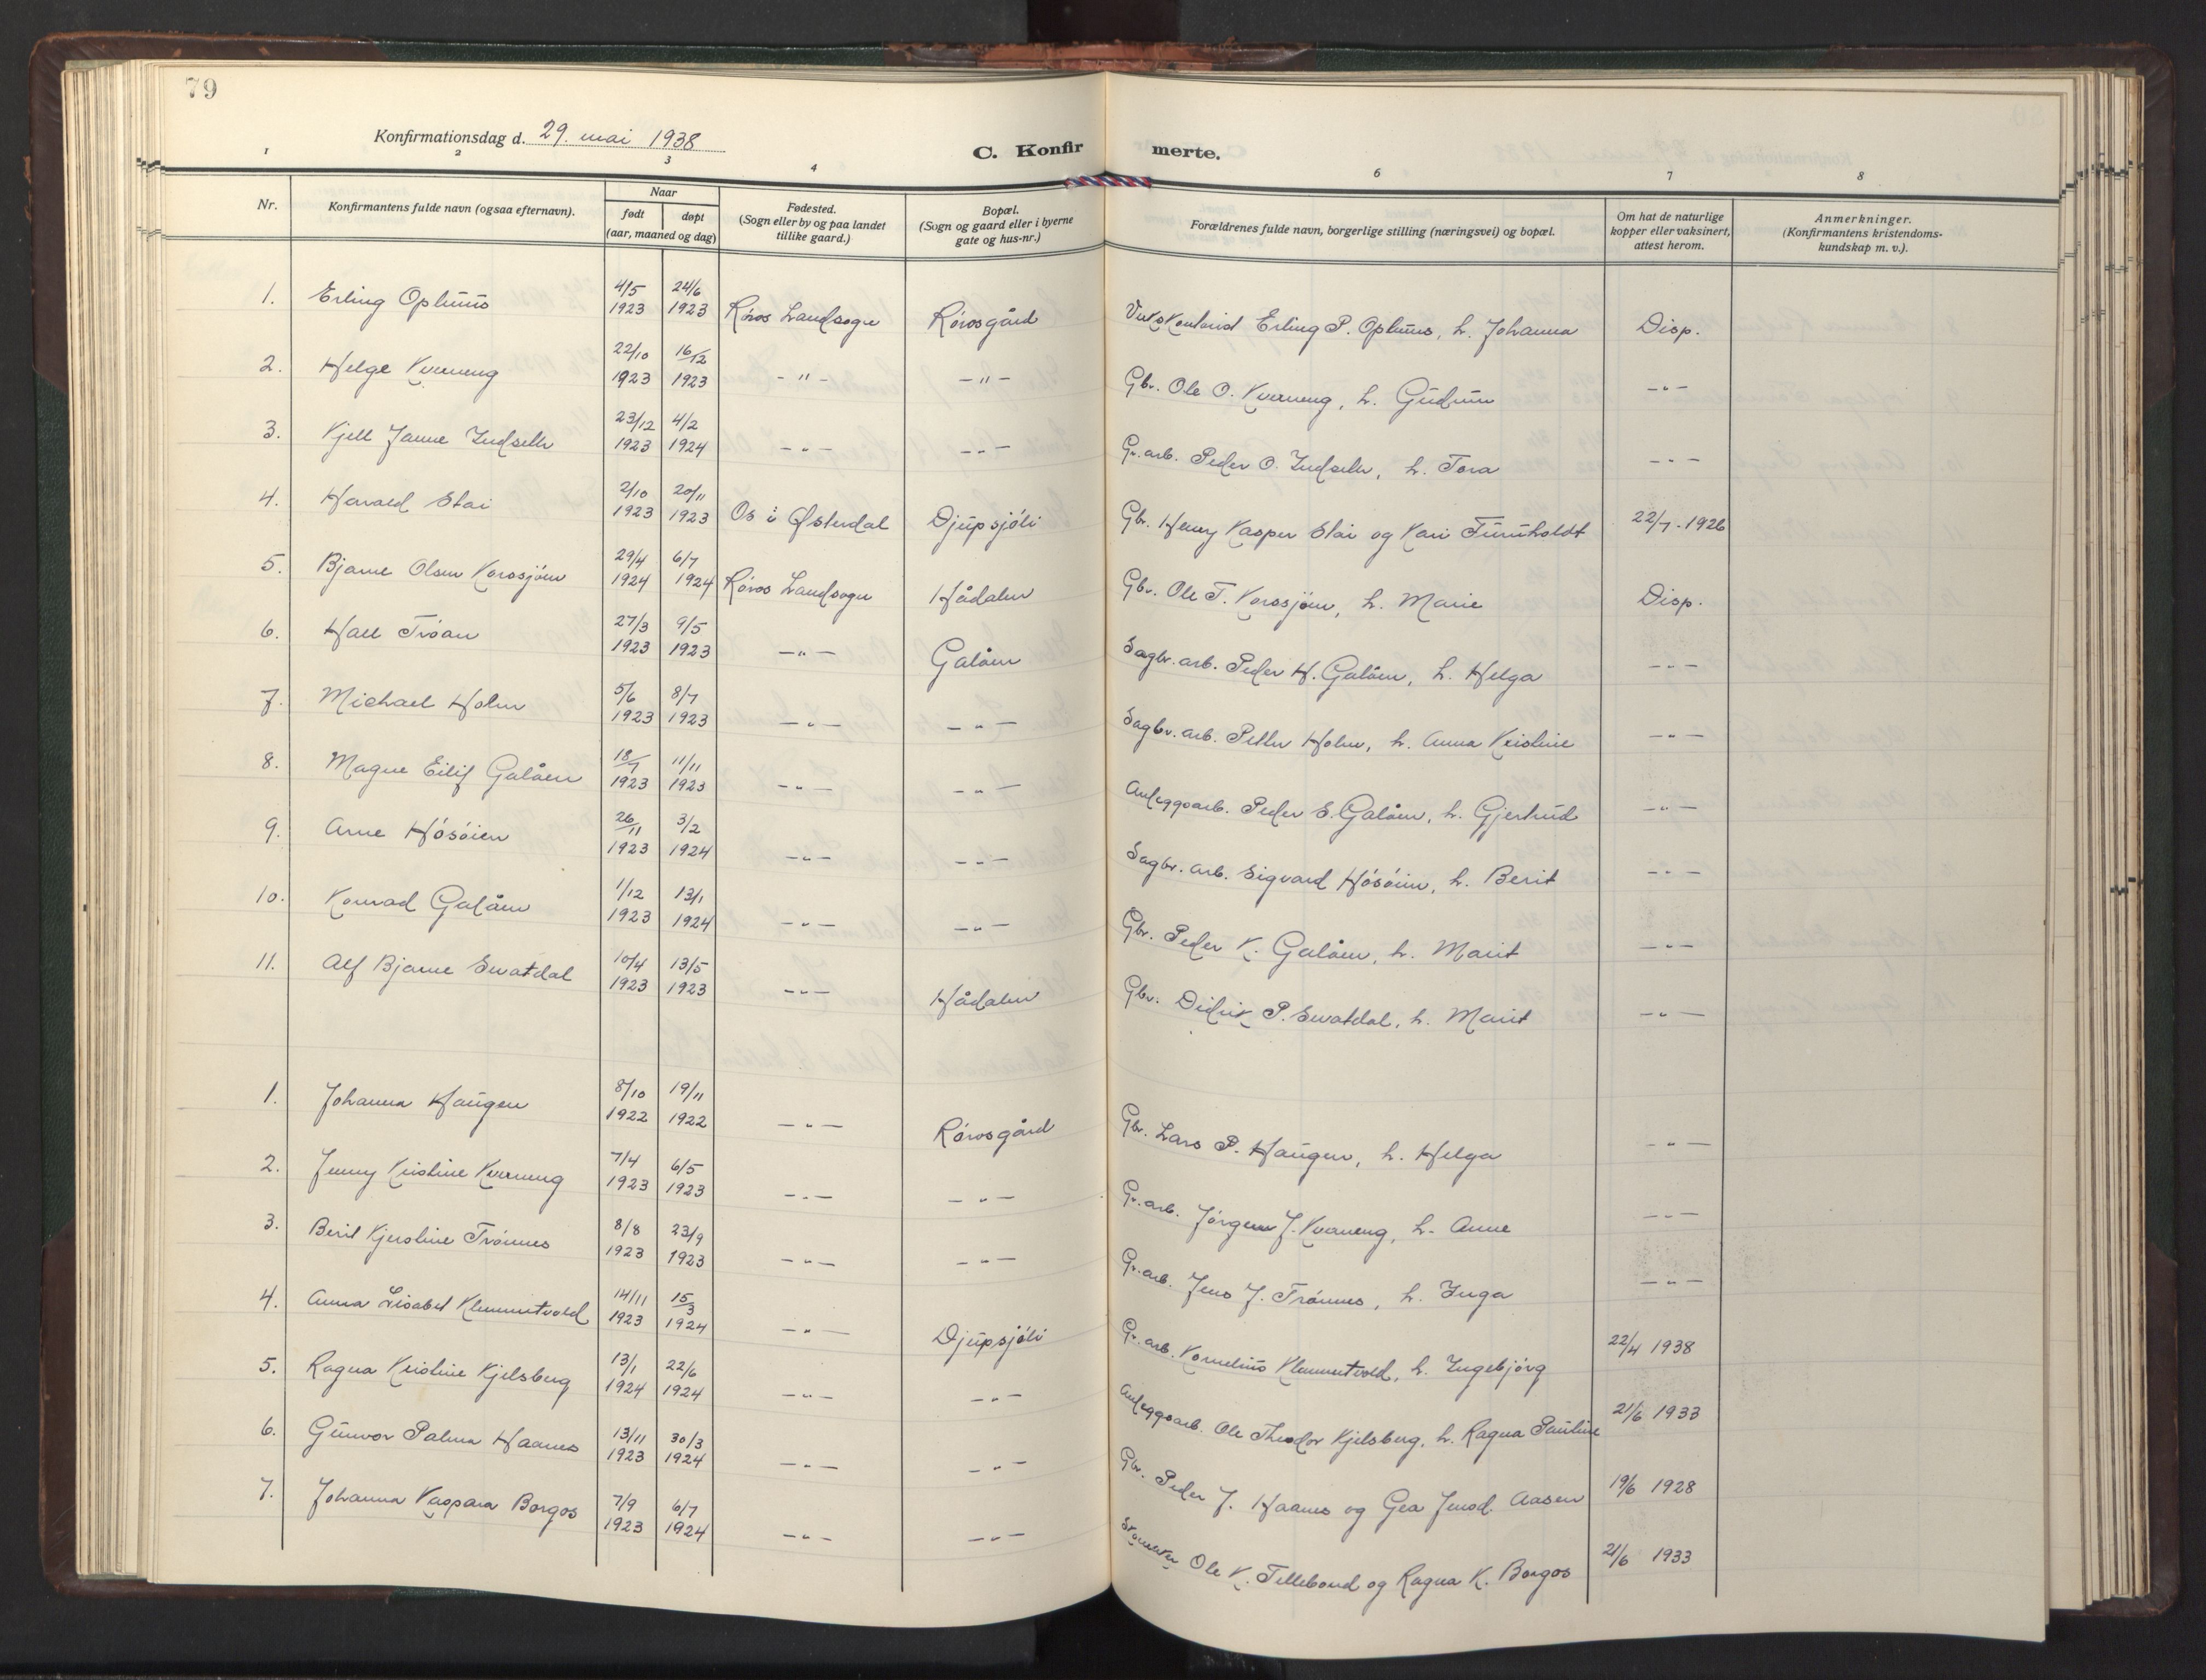 79
Konfirmationsdag d. 29. mai 1938
C. Konfirmerte.
1 2 3 4 6 7 8
Nr.
Konfirmantens fulde navn (ogsaa efternavn).
Naar
født døpt
(aar, maaned og dag)
Fødested.
(Sogn eller by og paa landet
tillike gaard.)
Bopæl.
(Sogn og gaard eller i byerne
gate og hus-nr.)
Forældrenes fulde navn, borgerlige stilling (næringsvei) og bopæl.
Om hat de naturlige
kopper eller vaksinert,
attest herom.
Anmerkninger.
(Konfirmantens kristendoms-
kundskap m. v.).
1. Erling Ophuus 4/5 1923 24/6 1923 Røros Landsogn Rørosgård Erling P. Ophuus, h. Johanna Disp.
2. Helge Kverneng 22/10 1923 16/12 1923 -"- -"- Gbr. Ole O. Kverneng, h. Gudrun -"-
3. Kjell Janne Indseth 23/12 1923 4/2 1924 -"- -"- Gr.arb. Peder O. Indseth, h. Tora -"-
4. Harald Stai 2/10 1923 20/11 1923 Os i Østerdal Djupsjøli Gbr. Henry Kasper Stai og Kari Tunholdt 22/7-1926
5. Bjarne Olsen Korssjøen 29/4 1924 6/7 1924 Røros Landsogn Hådalen Gbr. Ole T. Korssjøen, h. Marie Disp.
6. Hall Trøan 27/3 1923 9/5 1923 -"- Galåen Sagbr. arb. Peder H. Galåen, h. Helga -"-
7. Michael Holm 5/6 1923 8/7 1923 -"- -"- Sagbr. arb. Petter Holm, h. Anna Kristine -"-
8. Magne Eilif Galåen 18/7 1923 11/11 1923 -"- -"- Anleggsarb. Peder E. Galåen, h. Gjertrud -"-
9. Arne Høsøien 26/11 1923 3/2 1924 -"- -"- Sagbr. arb. Sigvard Høsøien, h. Berit -"-
10. Konrad Galåen 1/12 1923 13/1 1924 -"- -"- Gbr. Peder K. Galåen, h. Marit -"-
11. Alf Bjarne Evatdal 10/4 1923 13/5 1923 -"- Hådalen Gbr. Didrik P. Evatdal, h. Marit -"-
1. Johanna Haugen 8/10 1922 19/11 1922 -"- Rørosgård Gbr. Lars P. Haugen, h. Helga -"-
2. Jenny Kristine Kverneng 7/4 1923 6/5 1923 -"- -"- Gr.arb. Jørgen J. Kverneng, h. Anne -"-
3. Berit Kjerstine Trønnes 8/8 1923 23/9 1923 -"- -"- Gr.arb. Jens J. Trønnes, h. Inga -"-
4. Anna Lisabet Klemmetvold 14/11 1923 15/3 1924 -"- Djupsjøli Gr. arb. Kornelius Klemmetvold, h. Ingebjørg 22/4 1938
5. Ragna Kristine Kjelsberg 13/1 1924 22/6 1924 -"- -"- Anleggsarb. Ole Theodor Kjelsberg, h. Ragna Pauline 21/6 1933
6. Gunvor Palma Haanes 13/11 1923 30/3 1924 -"- -"- Gbr. Peder J. Haanes og Gea Jensd. Aasen 19/6 1928
7. Johanna Kaspara Borgos 7/9 1923 6/7 1924 -"- -"- Ole K. Tellebond og Ragna K. Borgos 21/6 1933